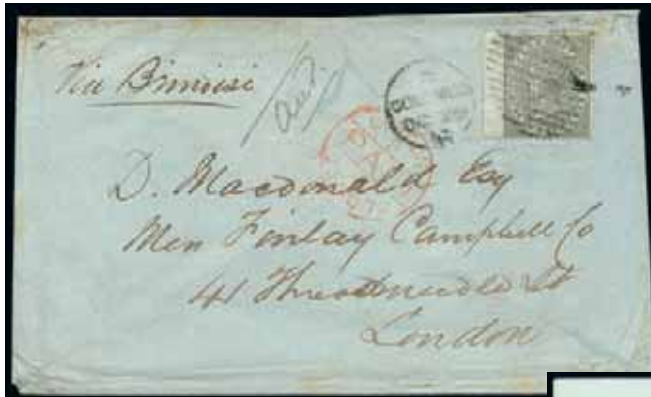 Via Brindisi
D. Macdonald Esq
Mess Finlay Campbell Co
41 Threadneedle St
London